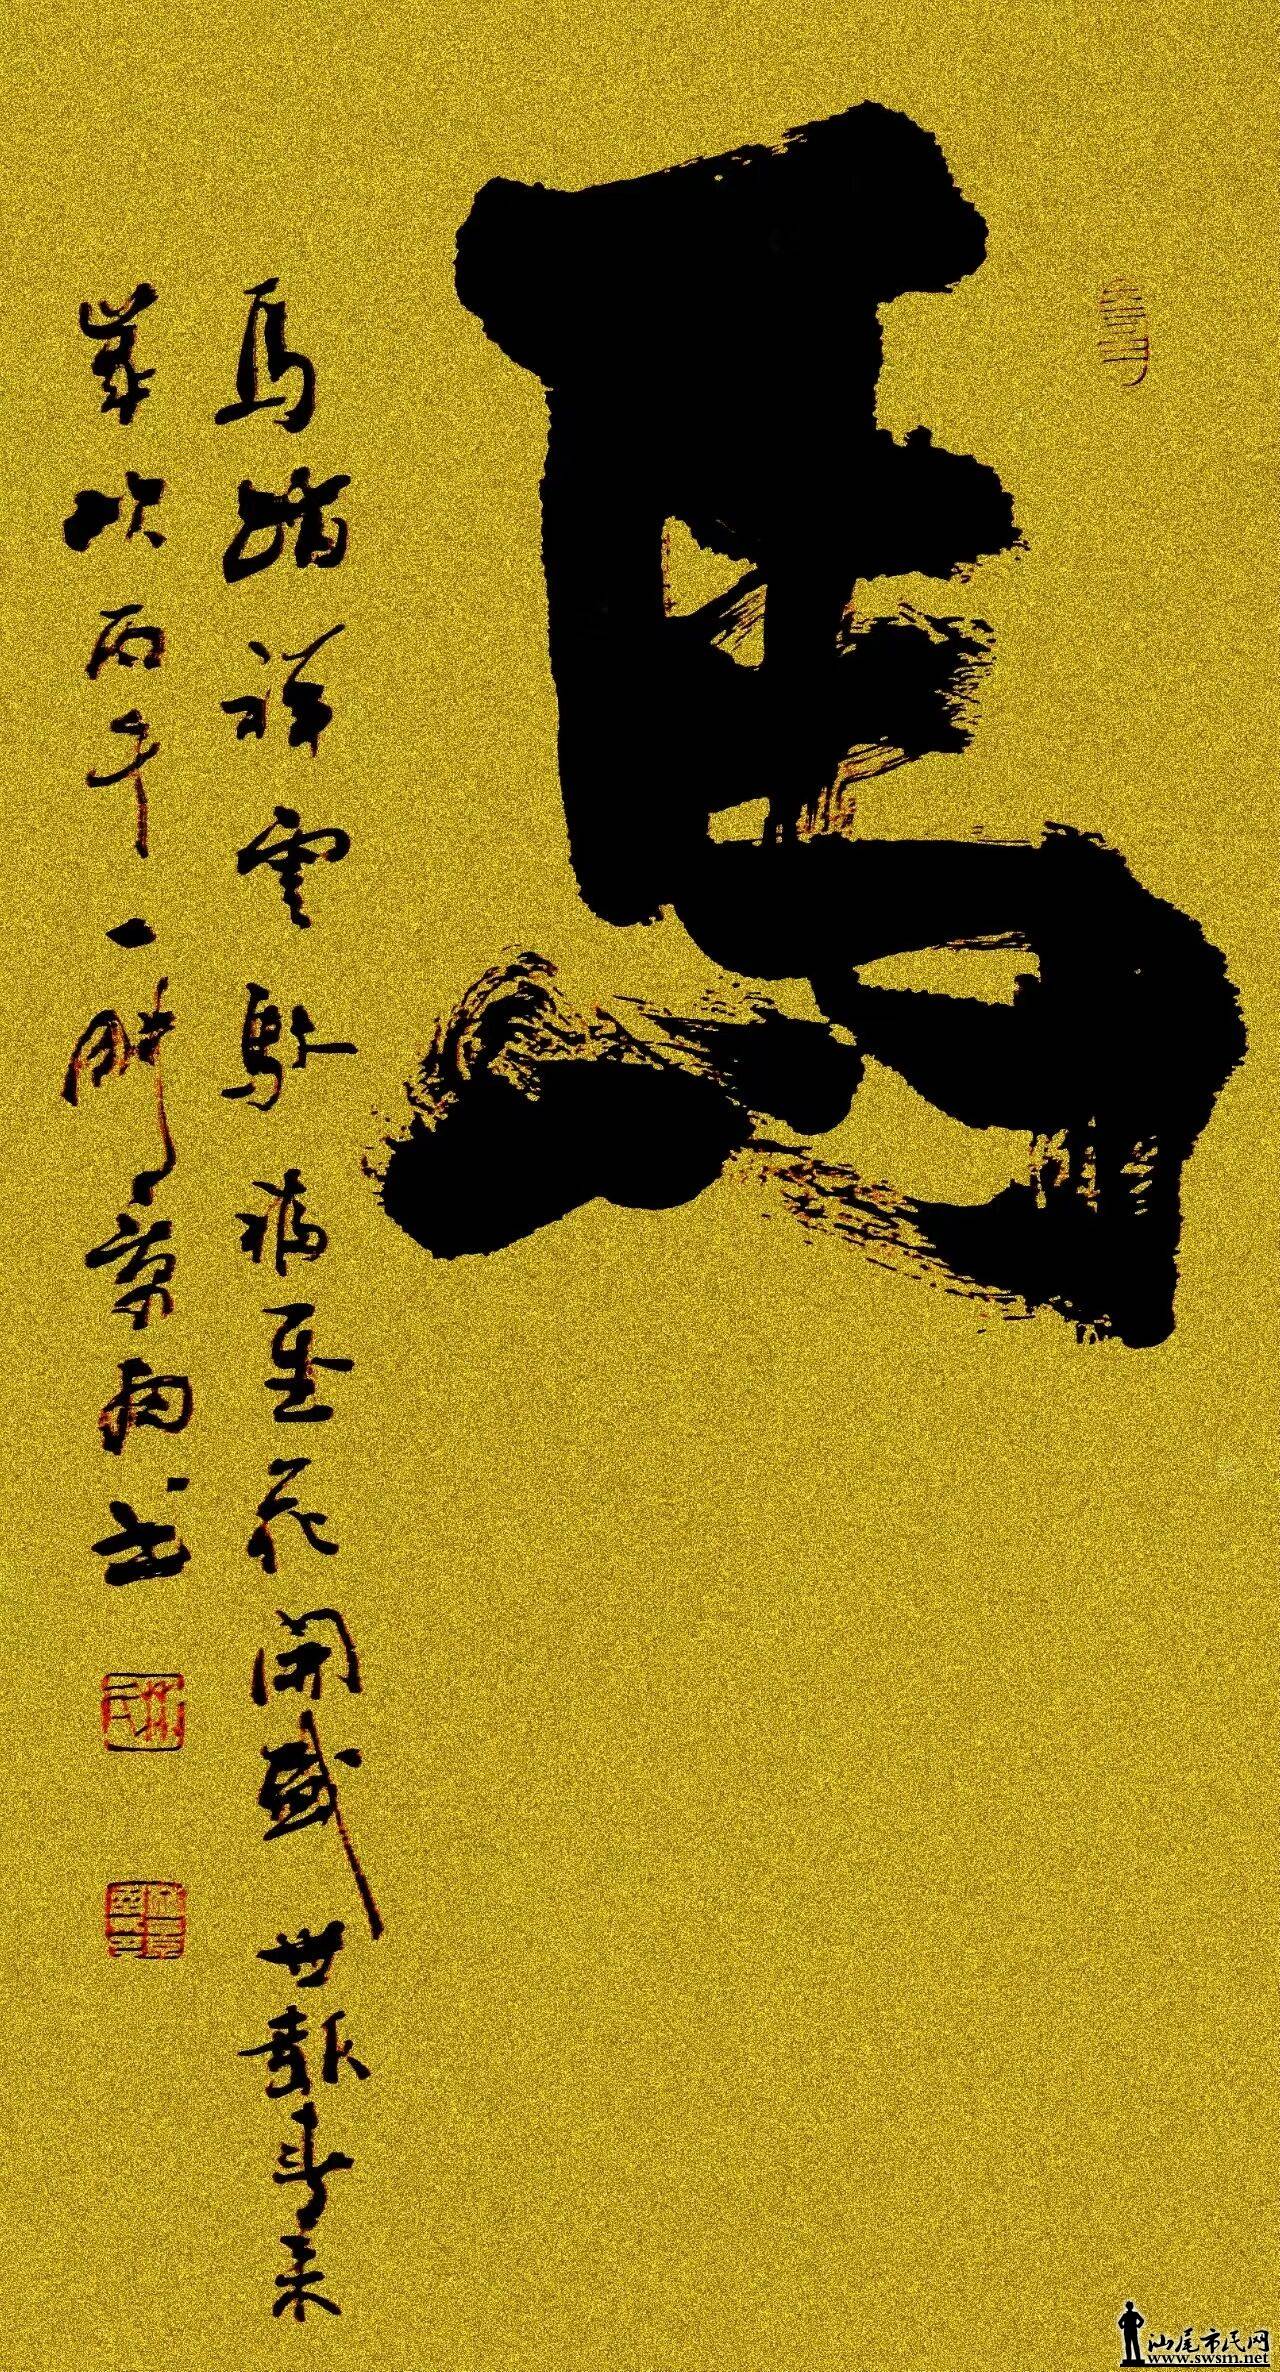 馬
馬踏祥雲馱福至花開盛世報春來
歲次丙午一醉景雨書
汕尾市民网
www.swsm.net